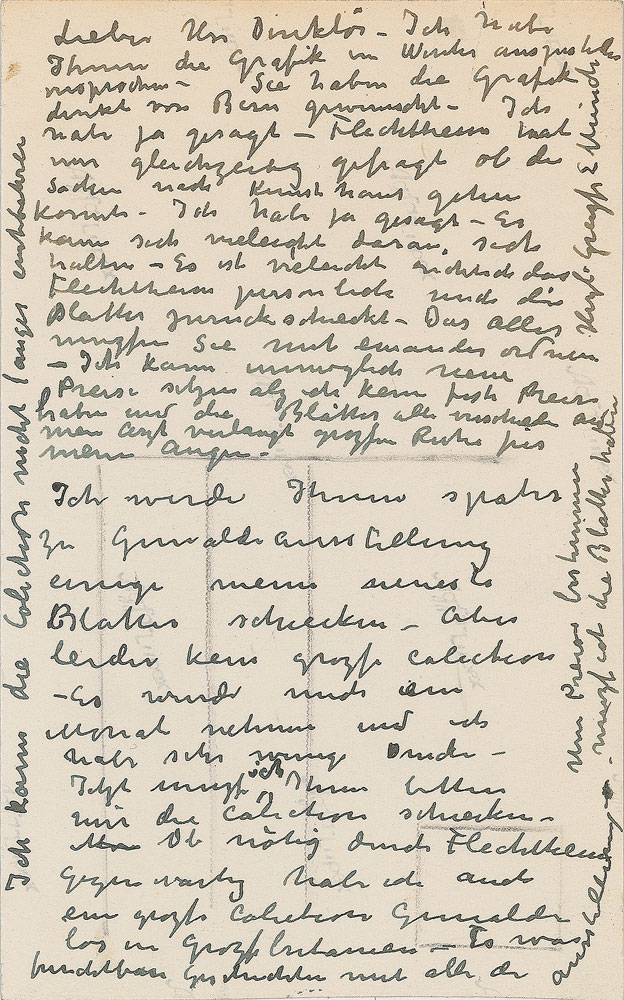 Lieber Herr Direktör – Ich habe
Ihnen die Grafik im Winter auszustellen
versprochen – Sie haben die Grafik
direkt von Bern gewünscht – Ich
habe ja gesagt – Flechtheim hat
nur gleichzeitig gefragt ob die
Sachen nach Kunsthaus gehen
könnte – Ich habe ja gesagt – Er
kann sich vieleicht daran, sich
halten – Es ist vieleicht
Flechtheim personlich und die
Blatter zuruckschieckt – Das alles
mussen Sie mit einander ordnen
– Ich kann unmoglich neue
Preise setzen als ich kein feste Preise
haben und die Blätter alle verschieden
mein Arzt verlangt grozse Ruhe fur
meine Augen –
Ich werde Ihnen später
zu Gemaldeausstellung
einige meine neueste
Blatter schiecken – Aber
leider kein grozse Colection
– Es wurde mich ein
Monat nehmen und ich
habe sehr wenige Drucke –
Jetzt musz ich Ihnen bitten
mir die Colection schiecken –
Ob nötig durch Flechtheim
Gegenwartig habe ich auch
ein grozse Colection Gemalde
los in Grozsbritanien – Es war
furchtbare Geschichten mit alle die
Ausstellungen –
Um Preise bestimmen
musz ich die Blatter haben
Herzl. Gruss E Munch
Ich kann die Colection nicht langer entbehren